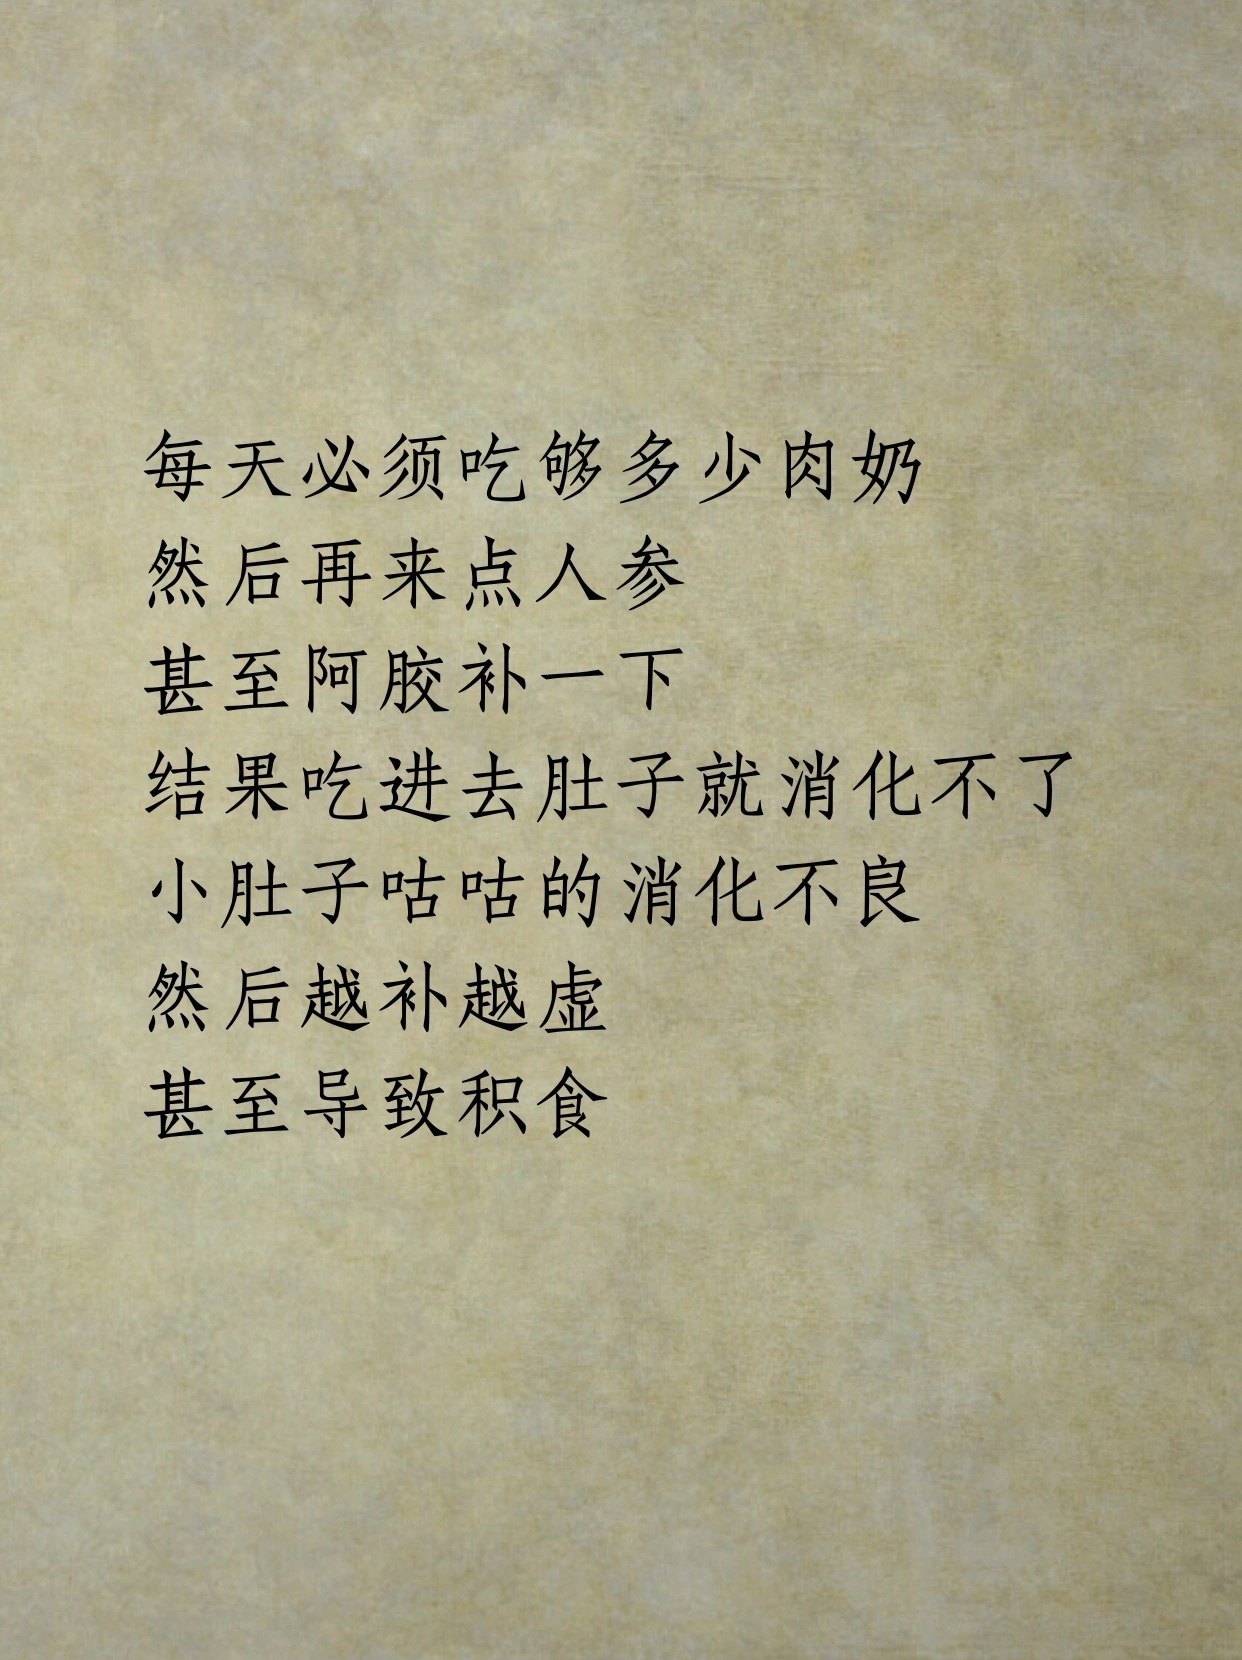 每天必须吃够多少肉奶
然后再来点人参
甚至阿胶补一下
结果吃进去肚子就消化不了
小肚子咕咕的消化不良
然后越补越虚
甚至导致积食